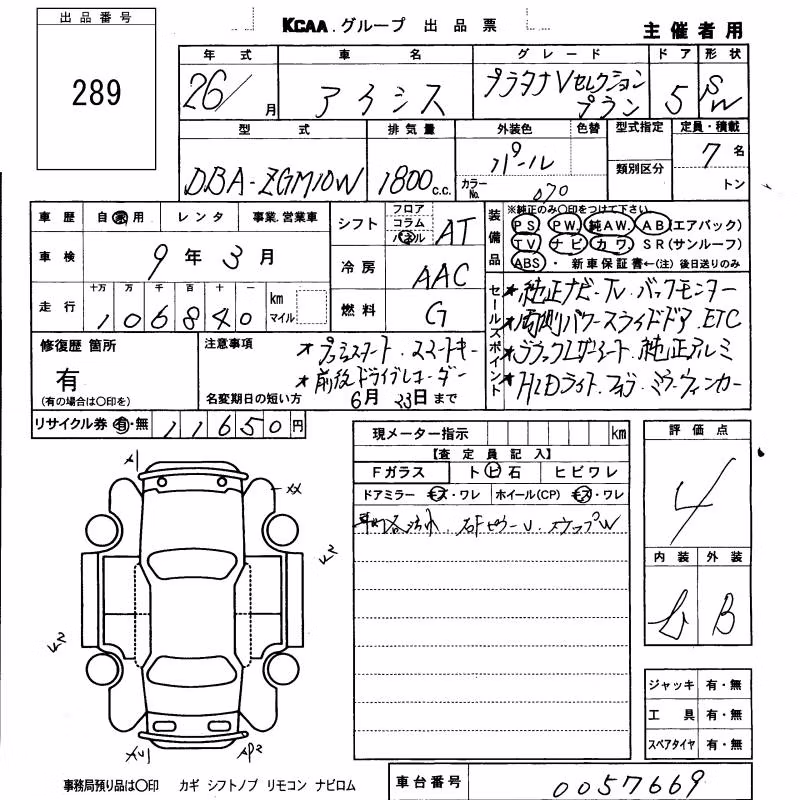 出品番号
289
KCAA.グループ 出品票
主催者用
年式 車名 グレード ドア 形状
26/月 アイシス プラタナVセレクション 5 SW
プラン
型式 排気量 外装色 色替 型式指定 定員・積載
DBA-ZGM10W 1800c.c. パール 類別区分 7名
カラーNo. 070 トン
車歴 自家用 レンタ 事業.営業車
シフト フロア コラム パネル AT
装備品 ※純正のみ○印をつけて下さい
PS PW 純AW. AB(エアバック)
TV ナビ カワ SR(サンルーフ)
ABS ・新車保証書←(注)後日送りのみ
車検 9年3月
冷房 AAC
走行 十万 万 千 百 十 一
106840 km マイル
燃料 G
セールスポイント
★純正ナビ・TV.バックモニター
★両側パワースライドドア.ETC
★ブラックレザーシート.純正アルミ
★HIDライト.フォグ.ミラーウィンカー
修復歴 箇所
有
(有の場合は○印を)
注意事項
★プッシュスタート.スマートキー
★前後ドライブレコーダー
名変期日の短い方 6月23日まで
リサイクル券 有・無 11650円
現メーター指示 km
【査定員記入】
Fガラス トビ石 ヒビワレ
ドアミラー キズ・ワレ ホイール(CP) キズ・ワレ
評価点
4
内装 外装
B
A1
XX
K2
K2
XU1
AP2
ジャッキ 有・無
工具 有・無
スペアタイヤ 有・無
事務局預り品は○印 カギ シフトノブ リモコン ナビロム
車台番号 0057669